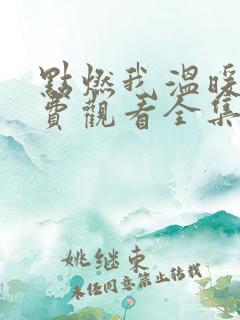 點燃我溫暖
費觀看全集
姚继东
未任同意禁止转载